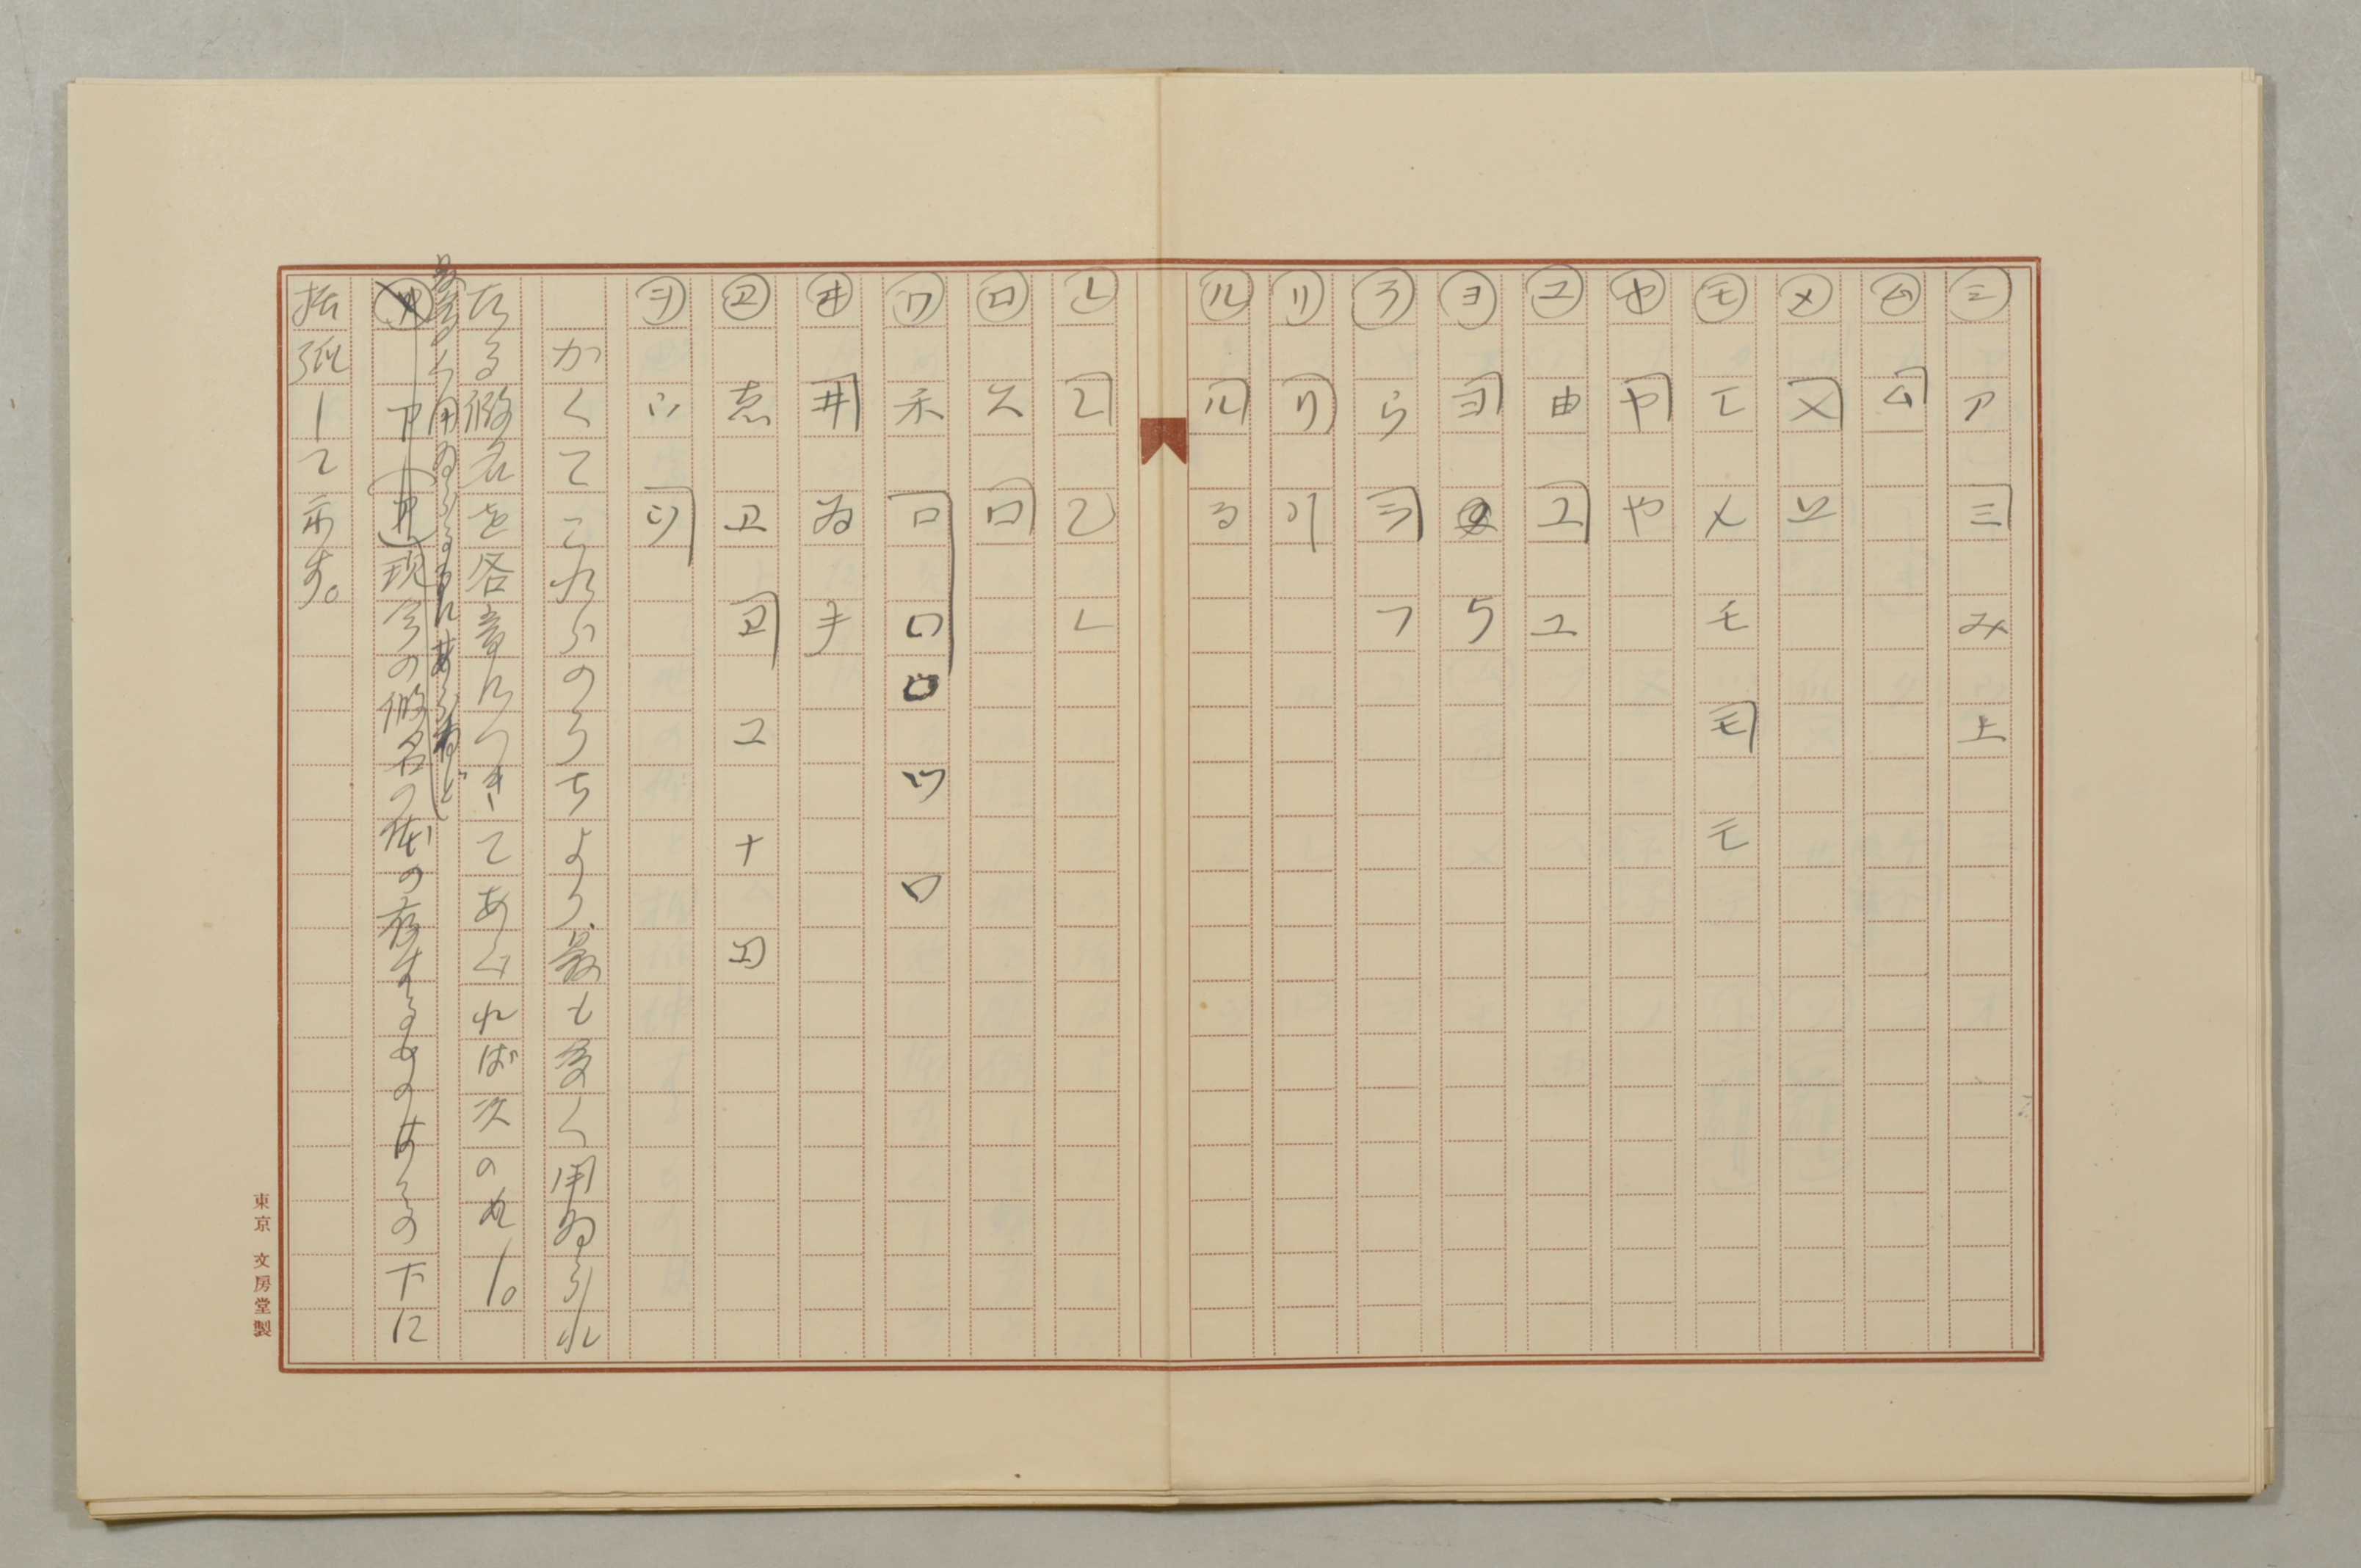 ミ ア 三 み 上
ム ム
メ メ
モ モ メ モ モ モ
ヤ ヤ や
ユ 由 ユ ユ
ヨ ヨ
ラ ら ラ フ
リ リ
ル ル る
レ レ し
ロ 口
ワ 禾 口 口 口 ワ
ヰ 井 ゐ
ヱ 恵 ヱ ヱ ユ ナ
ヲ ツ リ
かくてこれらのうちより最も多く用ゐられ
たる仮名を各音につきてあぐれば次の如し。
現今の仮名の体の存するものはその下に
括弧して示す。
東京 文房堂製